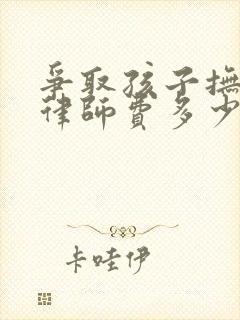 爭取孩子撫
律師費多少
卡哇伊